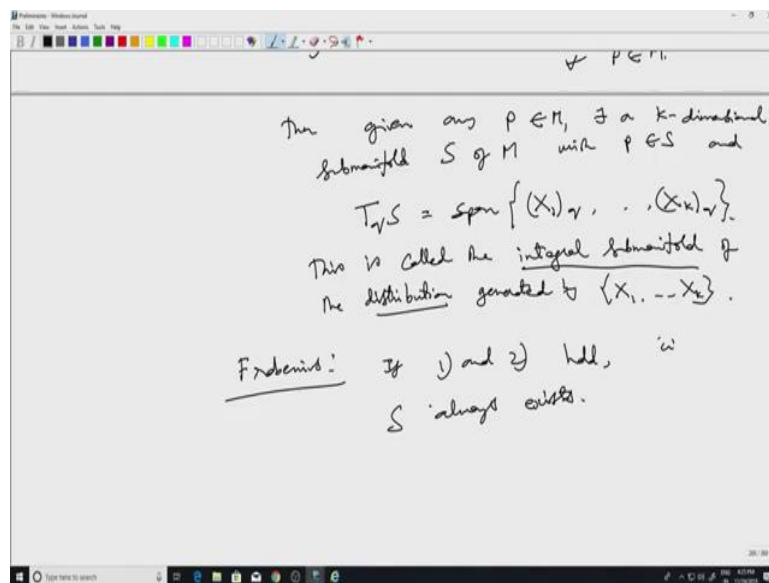 Preliminaries - Windows Journal
File Edit View Insert Actions Tools Help
∀ P ∈ M.
Then given any P ∈ M, ∃ a k-dimensional
submanifold S of M with P ∈ S and
T_q S = span { (X_1)_q, . . , (X_k)_q }.
This is called the integral submanifold of
the distribution generated by {X_1, ... X_k}.
Frobenius: If 1) and 2) hold,
S always exists.
Type here to search
ENG 4:25 PM